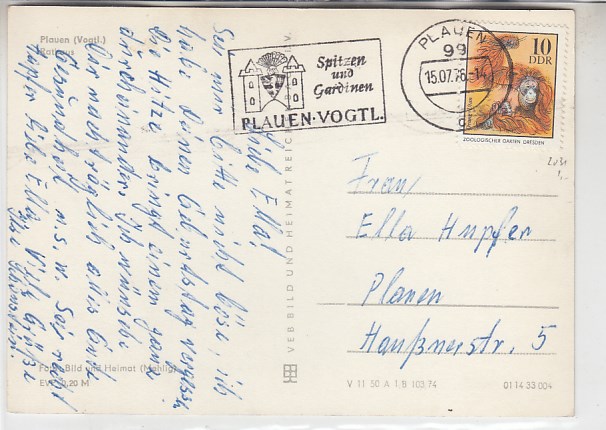 Plauen (Vogtl.)
Rathaus
Liebe Ella!
Sei mir bitte nicht böse, ich
habe Deinen Geburtstag vergessen
Die Hitze bringt einen ganz
durcheinander. Ich wünsche
Dir nachträglich alles Gute
Gesundheit u.s.w. Sei recht
tapfer liebe Ella. Viele Grüße
Foto: Bild und Heimat (Mehlig)
EVP 0,20 M
VEB BILD UND HEIMAT REICHENBACH I. V.
Spitzen
und
Gardinen
PLAUEN·VOGTL.
PLAUEN
99
15.07.76-14
10
DDR
ZOOLOGISCHER GARTEN DRESDEN
2031
Frau
Ella Hupfer
Plauen
Haußnerstr. 5
V 11 50 A 1/B 103/74
01 14 33 004